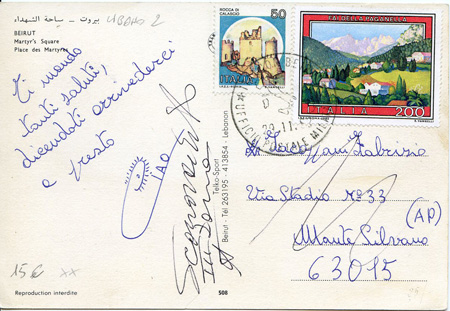 بيروت - ساحة الشهداء
BEIRUT
Martyr's Square
Place des Martyrs
LIBANO 2
Ti mando
tanti saluti,
dicendoti arrivederci
a presto
CIAO
15€
Reproduction interdite
508
Telko-Sport
Beirut - Tél 263195 - 413854 - Lebanon
ROCCA DI
CALASCIO
50
ITALIA
FAI DELLA PAGANELLA
ITALIA
200
Fabrizio
Via Stadio Nº 33
(AP)
Monte Silvano
63015